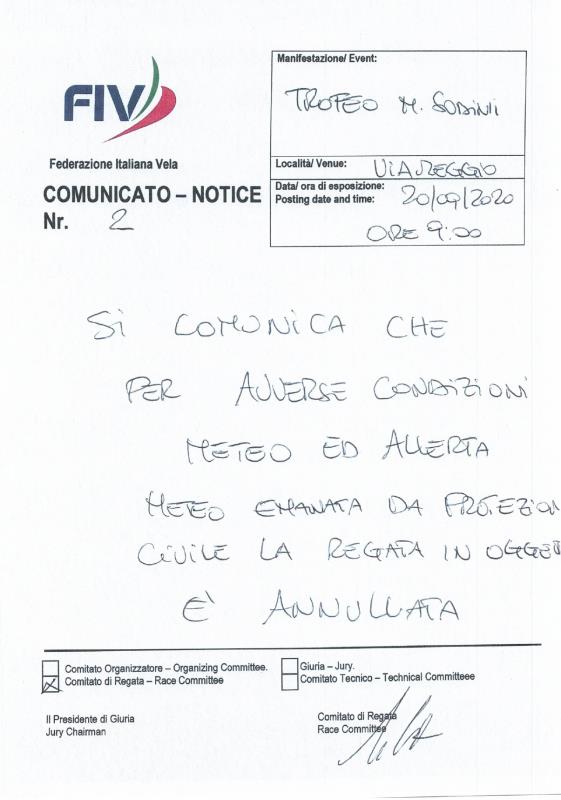 FIV
Federazione Italiana Vela
COMUNICATO – NOTICE
Nr. 2
Manifestazione/ Event:
TROFEO M. SODINI
Località/ Venue: VIAREGGIO
Data/ ora di esposizione:
Posting date and time: 20/09/2020
ORE 9:00
SI COMUNICA CHE
PER AVVERSE CONDIZIONI
METEO ED ALLERTA
METEO EMANATA DA PROTEZION
CIVILE LA REGATA IN OGGET
È ANNULLATA
Comitato Organizzatore – Organizing Committee.
Comitato di Regata – Race Committee
Giuria – Jury.
Comitato Tecnico – Technical Committeee
Il Presidente di Giuria
Jury Chairman
Comitato di Regata
Race Committee